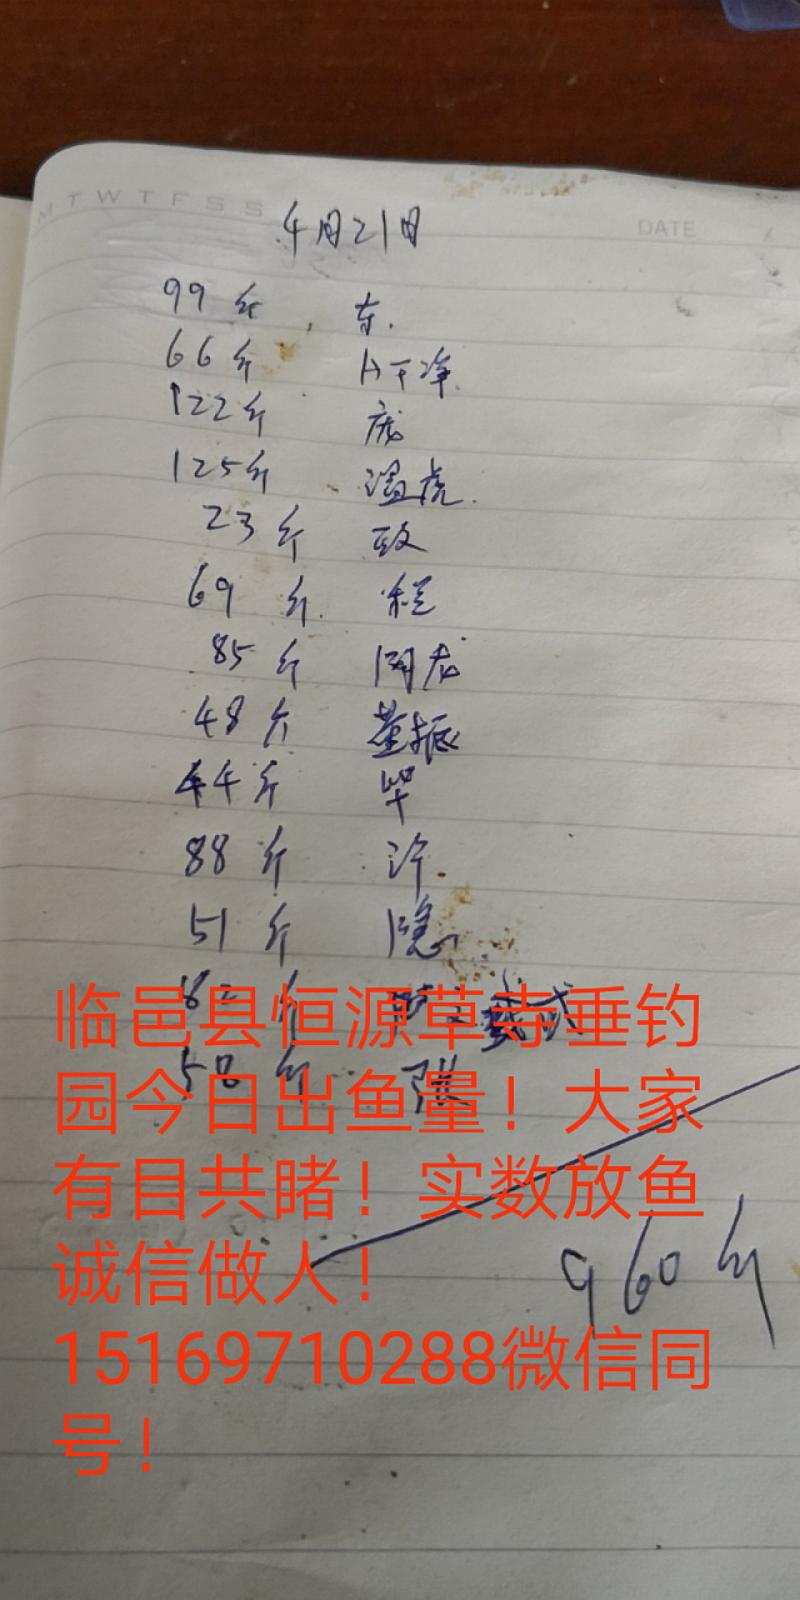 M T W T F S S
DATE
4月21日
99斤 东.
66斤 H干净.
122斤 庞
125斤 温虎.
23斤 致
69斤. 程
85斤 闫龙
48斤 董振
44斤 毕
88斤 许.
51斤 隐
82斤
58斤 张
临邑县恒源草寺垂钓
园今日出鱼量！大家
有目共睹！实数放鱼
诚信做人！
15169710288微信同
号！
960斤